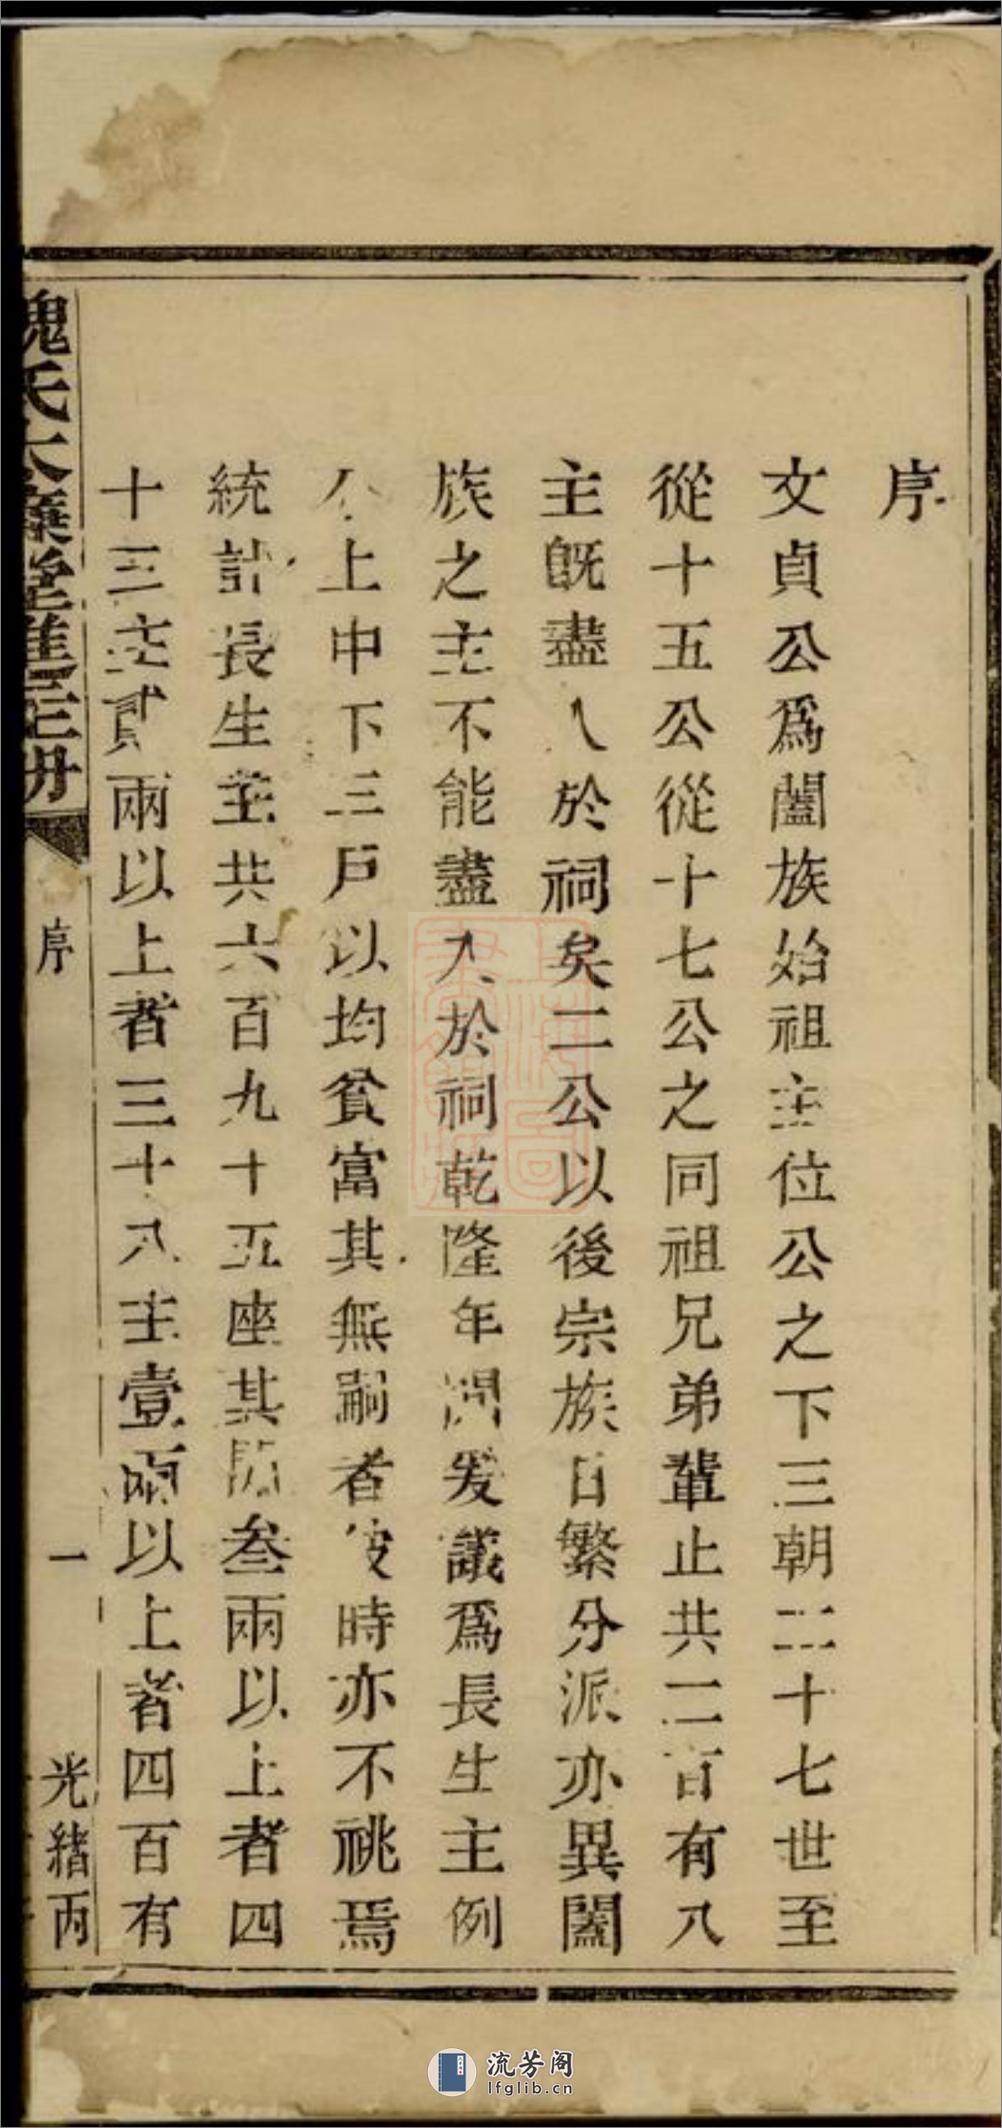 序
文貞公爲闔族始祖主位公之下三朝二十七世至
從十五公從十七公之同祖兄弟輩止共二百有八
主旣盡入於祠矣二公以後宗族日繁分派亦異闔
族之主不能盡入於祠乾隆年間发議爲長生主例
分上中下三戶以均貧富其無嗣者彼時亦不祧焉
統計長生主共六百九十五座其間叁兩以上者四
十三主貳兩以上者三十八主壹兩以上者四百有
魏氏大廉堂進主冊
序
一
光緒丙
流芳阁
lfglib.cn